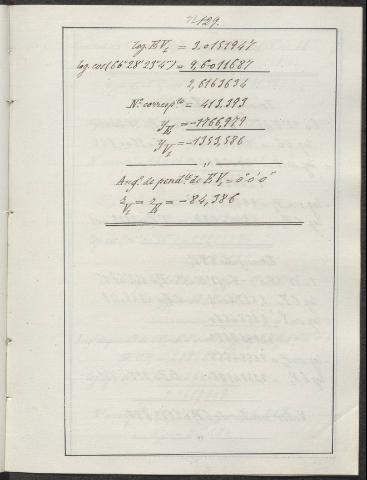 129.
log. E V₁ = 3,0151947
log. cos (66°28'23"47) = 9,6011687
2,6163634
N.º corresp.te = 413,393
y E = -1766,979
y V₁ = -1353,586
"
Ang.º de pend.te de E V₁ = 0°0'0"
z V₁ = z E = -84,386